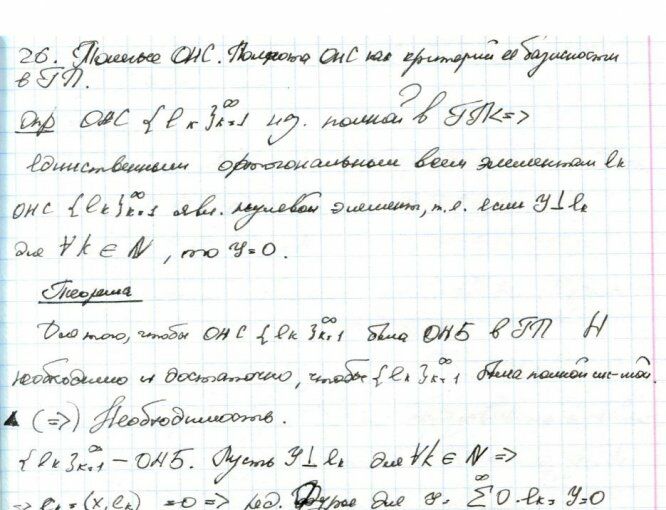 26. Полные ОНС. Полнота ОНС как критерий её базисности
в ГП.
Опр ОНС {e_k}_{k=1}^∞ наз. полной в ГП <=>
единственным ортогональным всем элементам e_k
ОНС {e_k}_{k=1}^∞ явл. нулевой элемент, т.е. если y⊥e_k
для ∀k∈N, то y=0.
Теорема
Для того, чтобы ОНС {e_k}_{k=1}^∞ была ОНБ в ГП H
необходимо и достаточно, чтобы {e_k}_{k=1}^∞ была полной сис-мой.
▲ (=>) Необходимость.
{e_k}_{k=1}^∞ - ОНБ. Пусть y⊥e_k для ∀k∈N =>
=> c_k = (x, e_k) = 0 => ряд Фурье для y = ∑^∞ 0·e_k = y = 0